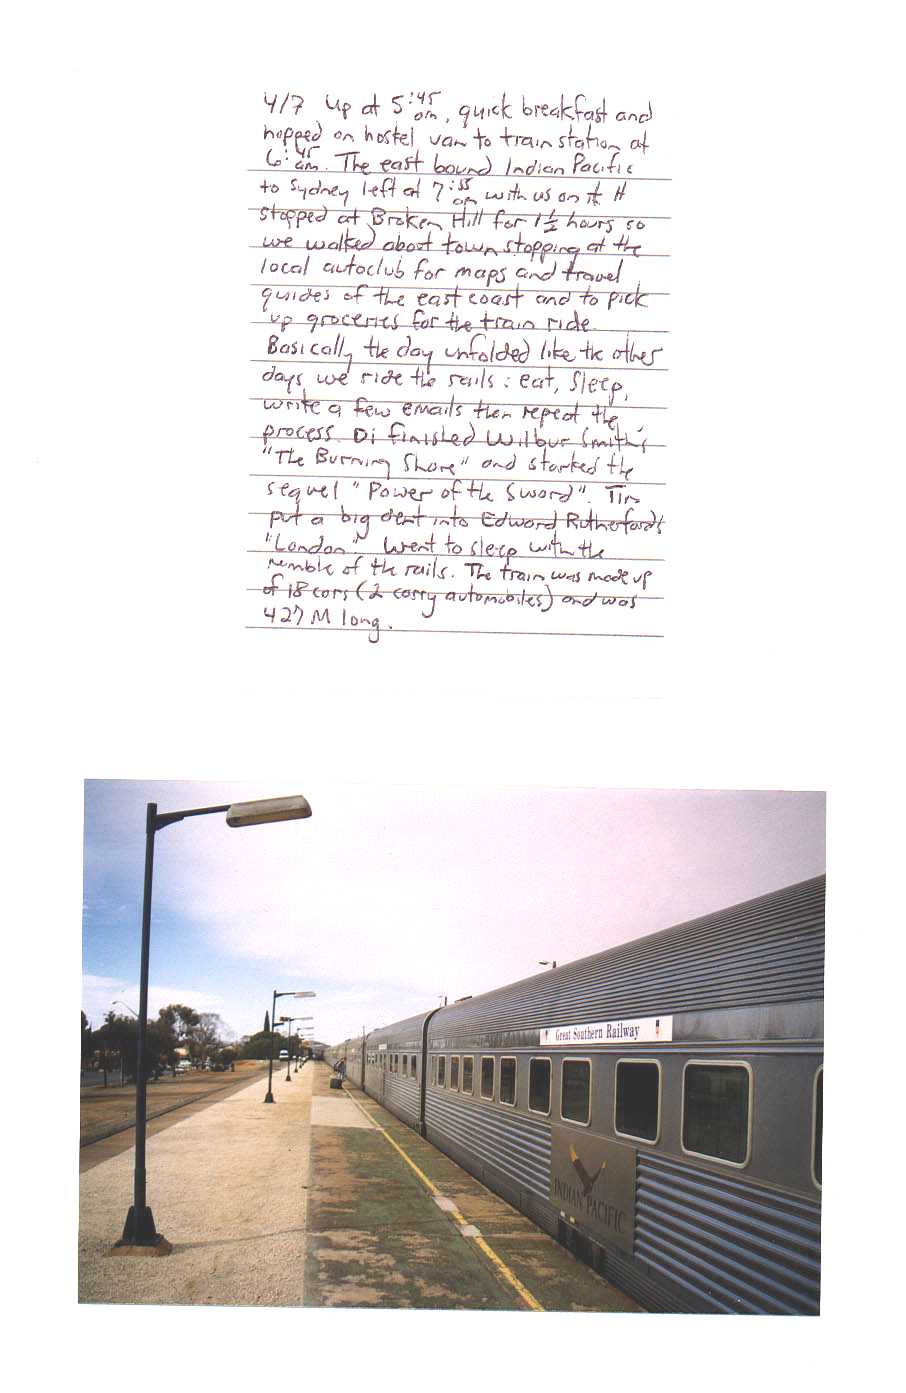 4/7 Up at 5:45 am, quick breakfast and
hopped on hostel van to train station at
6:45 am. The east bound Indian Pacific
to Sydney left at 7:55 am with us on it. It
stopped at Broken Hill for 1½ hours so
we walked about town stopping at the
local autoclub for maps and travel
guides of the east coast and to pick
up groceries for the train ride.
Basically the day unfolded like the other
days we ride the rails: eat, sleep,
write a few emails then repeat the
process. Di finished Wilbur Smith's
"The Burning Shore" and started the
sequel "Power of the Sword". Tim
put a big dent into Edward Rutherford's
"London". Went to sleep with the
rumble of the rails. The train was made up
of 18 cars (2 carry automobiles) and was
427 M long.
Great Southern Railway
INDIAN PACIFIC